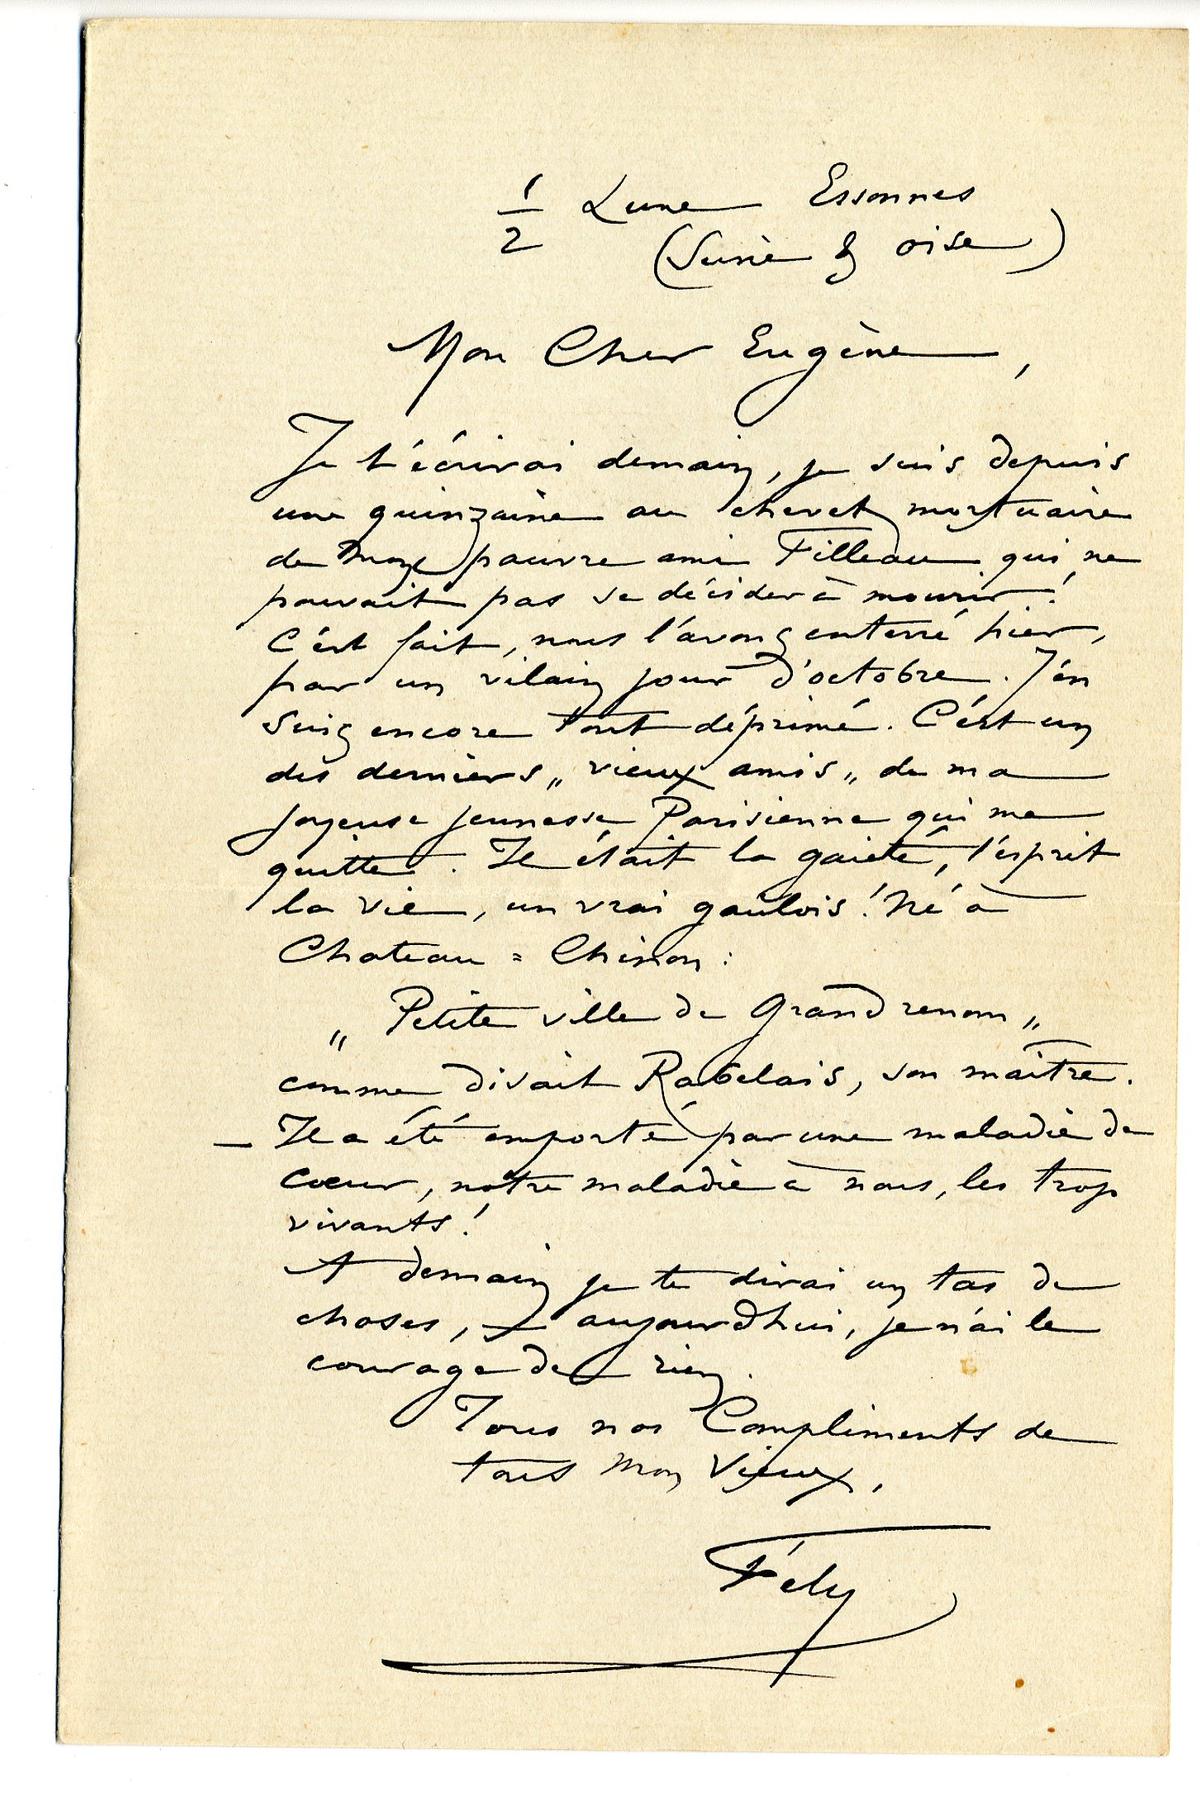 1/2 Lune Essonnes
(Seine & oise)
Mon Cher Eugène,
Je t'écrirai demain, je suis depuis
une quinzaine au chevet mortuaire
de mon pauvre ami Filleau qui ne
pouvait pas se décider à mourir!
C'est fait, nous l'avons enterré hier,
par un vilain jour d'octobre. J'en
suis encore tout déprimé. C'est un
des derniers „ vieux amis „ de ma
joyeuse jeunesse Parisienne qui me
quitte. Il était la gaieté, l'esprit
la vie, un vrai gaulois! Né à
Chateau = Chinon:
„ Petite ville de Grand renom „
comme disait Rabelais, son maître.
— Il a été emporté par une maladie de
cœur, notre maladie à nous, les trop
vivants!
A demain je te dirai un tas de
choses, – aujourd'hui, je n'ai le
courage de rien.
Tous nos Compliments de
tous mon Vieux,
Fély